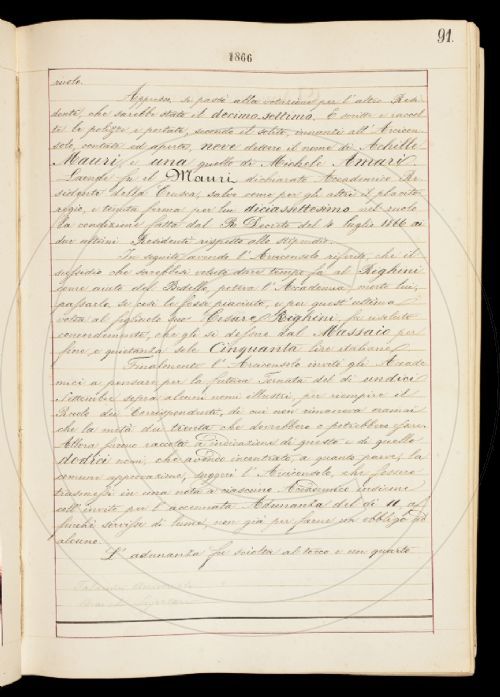 91.
1866
ruolo.
Appresso, si passò alla votazione per l'altro Resi-
dente, che sarebbe stato il decimo settimo. E scritte e raccol-
te le polizze e portate, secondo il solito, innanzi all'Arcicon-
solo, contate ed aperte, nove dettero il nome di Achille
Mauri, e una quello di Michele Amari.
Laonde fu il Mauri dichiarato Accademico Re-
sidente della Crusca, salvo come per gli altri il placito
regio, e tenuta ferma per lui diciassettesimo nel ruolo
la condizione fatta dal R. Decreto del 4 luglio 1866 ai
due ultimi Residenti rispetto allo stipendio.
In seguito avendo l'Arciconsolo riferito, che il
sussidio che sarebbesi voluto dare tempo fa al Righini
come aiuto del Bidello, poteva l'Accademia, morto lui,
passarlo, se così le fosse piaciuto, e per quest'ultima
volta al figliuolo suo Cesare Righini, fu risoluto
concordemente, che gli si desse dal Massaio per
fine, e quietanza sole Cinquanta lire italiane.
Finalmente l'Arciconsolo invitò gli Accade-
mici a pensare per la futura Tornata del dì undici
Settembre sopra alcuni nomi illustri, per riempire il
Ruolo dei Corrispondenti, di cui non rimaneva oramai
che la metà dei trenta che dovrebbero o potrebbero essere.
Allora furono raccolti a indicazione di questo e di quello
dodici nomi, che avendo incontrato, a quanto parve, la
comune approvazione, suggerì l'Arciconsolo, che fossero
trasmessi in una nota a ciascuno Accademico insieme
coll'invito per l'accennata Adunanza del dì 11, af-
finchè servisse di lume, non già per farne un obbligo ad
alcuno.
L'adunanza fu sciolta al tocco e un quarto